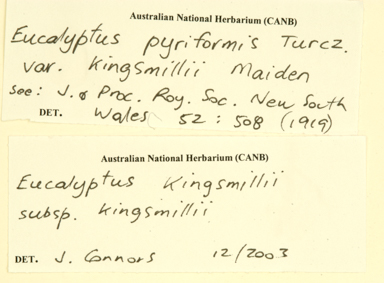 Australian National Herbarium (CANB)
Eucalyptus pyriformis Turcz.
var. Kingsmillii Maiden
see: J. & Proc. Roy. Soc. New South
DET. Wales 52 : 508 (1919)
Australian National Herbarium (CANB)
Eucalyptus Kingsmillii
subsp. Kingsmillii
DET. J. Connors 12/2003